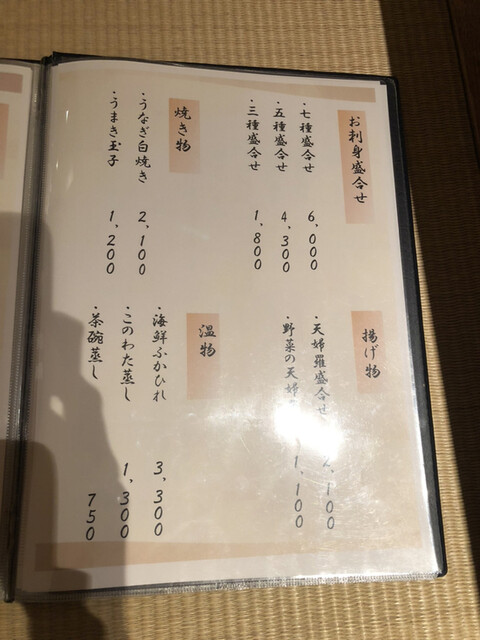 お刺身盛合せ
・七種盛合せ 6,000
・五種盛合せ 4,300
・三種盛合せ 1,800
焼き物
・うなぎ白焼き 2,100
・うまき玉子 1,200
揚げ物
・天婦羅盛合せ 2,100
・野菜の天婦 1,100
温物
・海鮮ふかひれ 3,300
・このわた蒸し 1,300
・茶碗蒸し 750